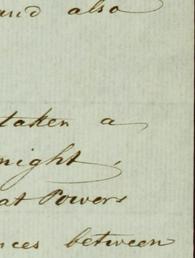 and also
taken a
night,
at Powers
nces between